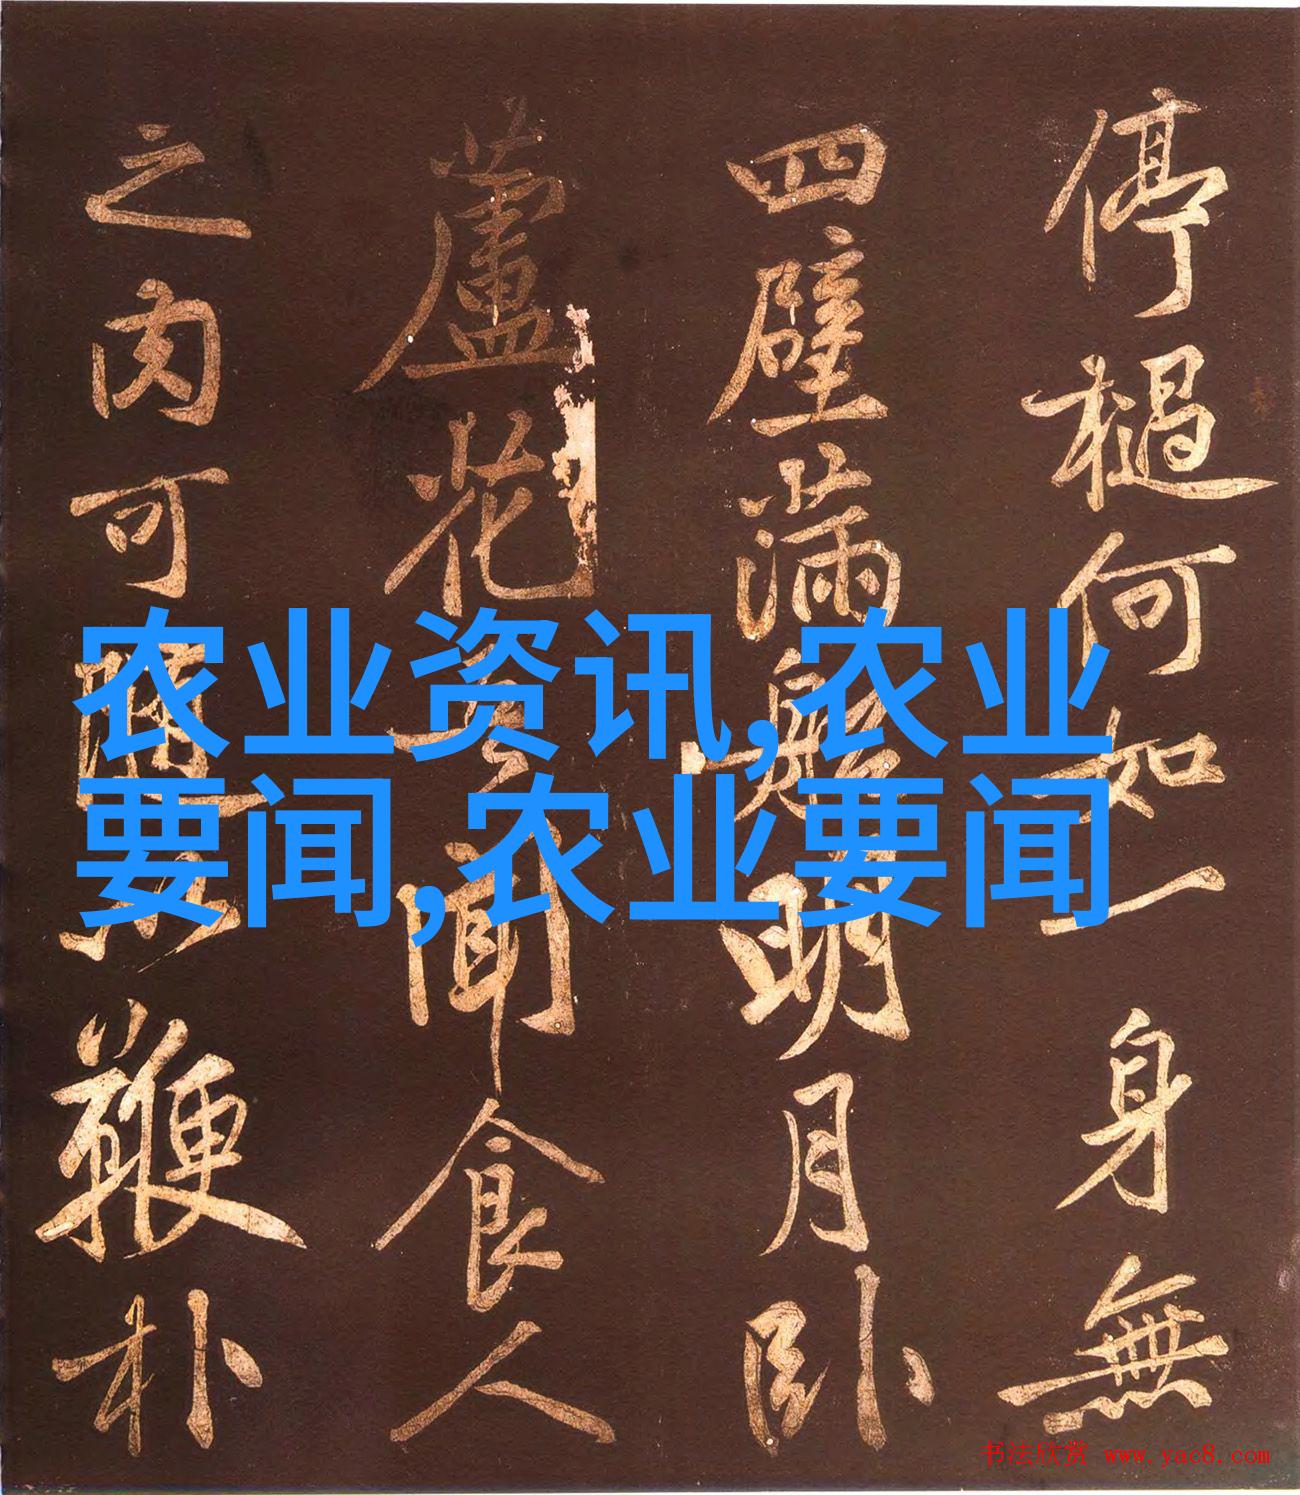 停檛何如一身無
四壁滿鄰明月卧
蘆花旁聞食人
之肉可隨以鞭朴
农业资讯,农业
要闻,农业要闻
书法欣赏 www.yac8.com